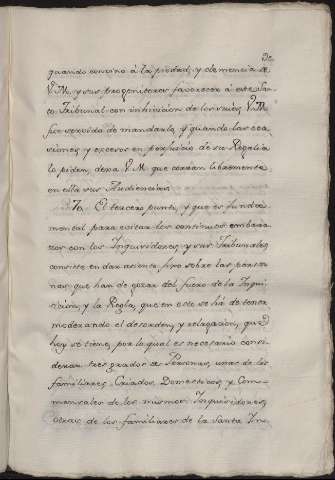 quando convino à la piedad, y clemencia de
V. M. y sus progenitores favorecer à este San-
to Tribunal con inhivicion de los suios V. M.
fue servido de mandarlo, y quando las oca-
siones, y excesos en perjuicio de su Regalia
lo piden, dexa V. M. que corran libremente
en ella sus Audiencias.
70. El tercero punto, y que es funda-
mental para evitar los continuos embara-
zos con los Inquisidores, y sus Tribunales
consiste en dar asiento fixo sobre las perso-
nas que han de gozar del fuero de la Inqui-
sicion, y la Regla, que en esto se há de tener
moderando el desorden, y relaxacion, que
hoy se tiene, por lo qual es necesario consi-
derar tres grados de Personas, unas de los
familiares Criados Domesticos, y Com-
mensales de los mismos Inquisidores,
otras de los familiares de la Santa In-